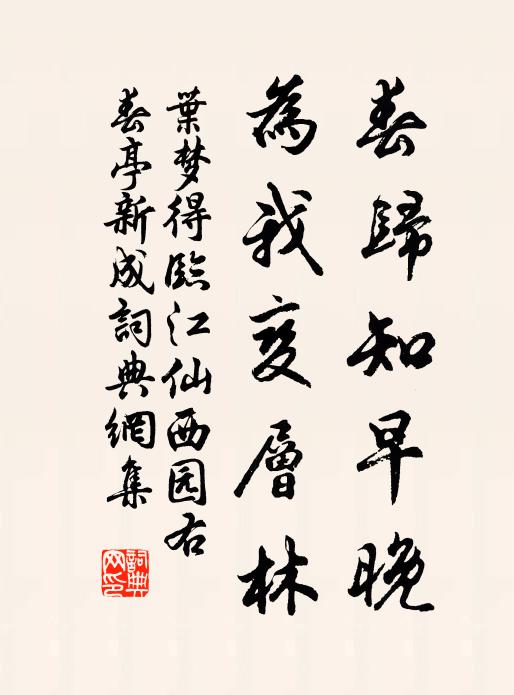 春歸知早晚
為我变層林
葉梦得臨江仙西园右
春亭新成詞典網集
詞典
网印